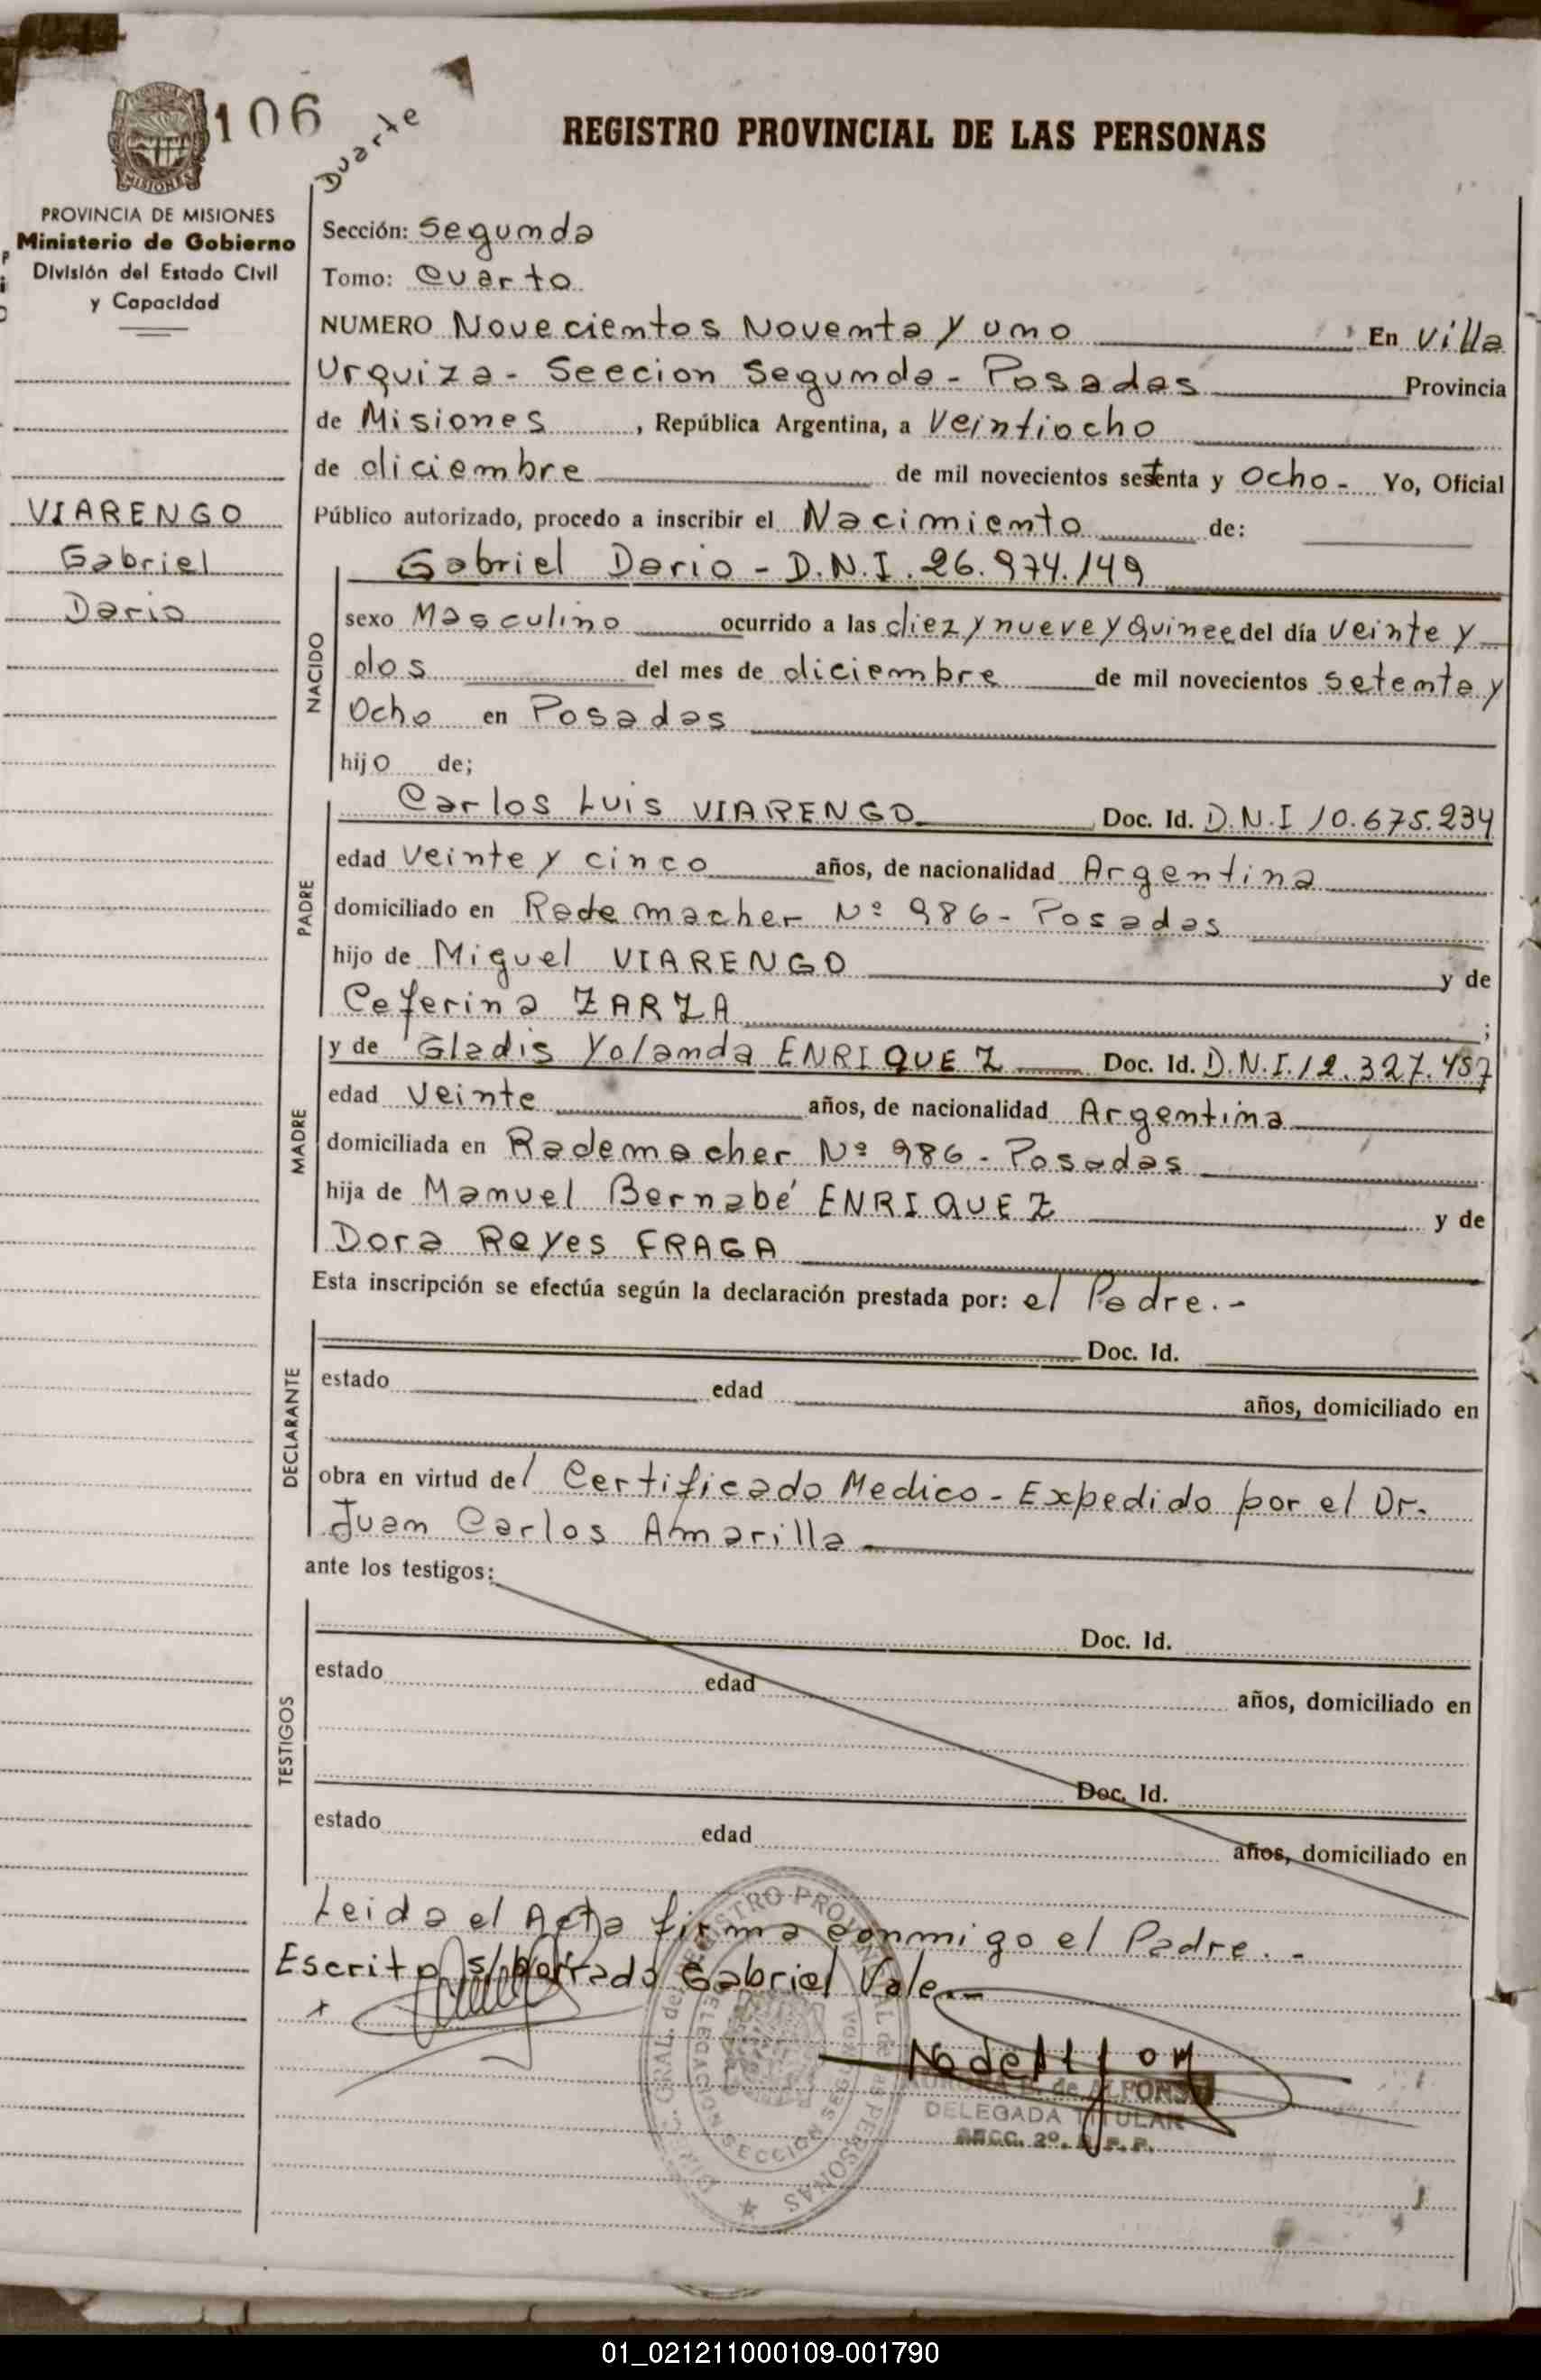 106
Duarte
REGISTRO PROVINCIAL DE LAS PERSONAS
MISIONES
PROVINCIA DE MISIONES
Ministerio de Gobierno
División del Estado Civil
y Capacidad
VIARENGO
Gabriel
Dario
Sección: Segunda
Tomo: Cuarto
NUMERO Novecientos Noventa y uno En Villa
Urquiza - Seccion Segunda - Posadas Provincia
de Misiones , República Argentina, a Veintiocho
de diciembre de mil novecientos setenta y Ocho - Yo, Oficial
Público autorizado, procedo a inscribir el Nacimiento de:
Gabriel Dario - D.N.I. 26.974.149
NACIDO
sexo Masculino ocurrido a las diez y nueve y Quince del día Veinte y
dos del mes de diciembre de mil novecientos setenta y
Ocho en Posadas
hijo de;
PADRE
Carlos Luis VIARENGO Doc. Id. D.N.I 10.675.234
edad Veinte y cinco años, de nacionalidad Argentina
domiciliado en Rademacher Nº 986 - Posadas
hijo de Miguel VIARENGO y de
Ceferina ZARZA ;
MADRE
y de Gladis Yolanda ENRIQUEZ Doc. Id. D.N.I. 12.327.457
edad Veinte años, de nacionalidad Argentina
domiciliada en Rademacher Nº 986 - Posadas
hija de Manuel Bernabé ENRIQUEZ y de
Dora Reyes FRAGA
Esta inscripción se efectúa según la declaración prestada por: el Padre.-
DECLARANTE
Doc. Id.
estado edad años, domiciliado en
obra en virtud del Certificado Medico - Expedido por el Dr.
Juan Carlos Amarilla
ante los testigos:
TESTIGOS
Doc. Id.
estado edad años, domiciliado en
Doc. Id.
estado edad años, domiciliado en
Leida el Acta firma conmigo el Padre. -
Escrito s/borrado Gabriel Vale.-
DELEGADA TITULAR
SECC. 2º.
01_021211000109-001790